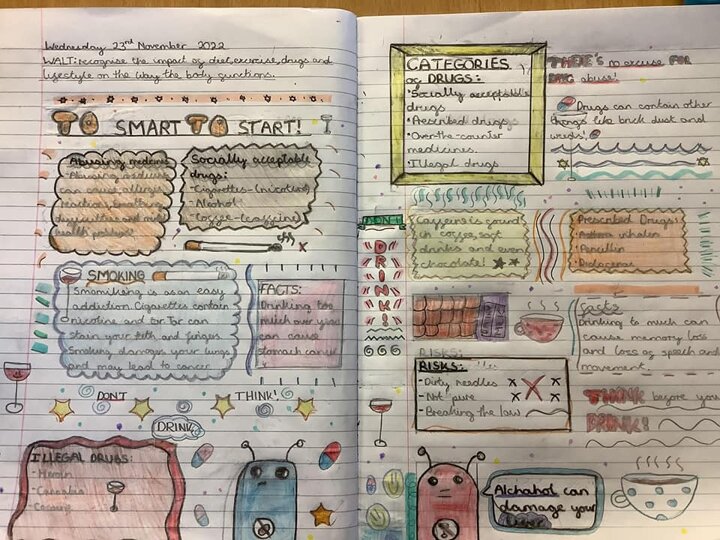 Wednesday 23rd November 2022
WALT: recognise the impact of diet, exercise, drugs and
lifestyle on the way the body functions.
TO SMART TO START!
Abusing medicine
Abusing medicine
can cause allergic
reaction, breathing
and
health
Socially acceptable
drugs:
-Cigarettes-(nicotine)
-Alcohol
-Coffee-(caffeine)
SMOKING
is as an easy
addiction. Cigarettes contain
nicotine and tar. Tar can
stain your teeth and fingers.
Smoking damages your lungs
and may lead to cancer.
FACTS:
Drinking too
much over
can cause
stomach cancer
DONT THINK!
DRINK
ILLEGAL DRUGS:
-Heroin
-Cannabis
-Cocaine
CATEGORIES
of DRUGS:
Socially acceptable
drugs
Prescribed drugs
Over-the-counter
medicines.
Illegal drugs
THERE'S no excuse FOR
DRUG abuse!
Drugs can contain other
things like brick dust and
DON'T
DRINK!
Caffeine is found
in coffee, soft
drinks and even
chocolate!
Prescribed Drugs:
inhaler
RISKS:
RISKS:
-Dirty needles
-Not pure
-Breaking the law
Facts
Drinking to much can
cause memory loss
and loss of speech and
movement.
THINK before you
DRINK!
Alchahol can
damage your
liver